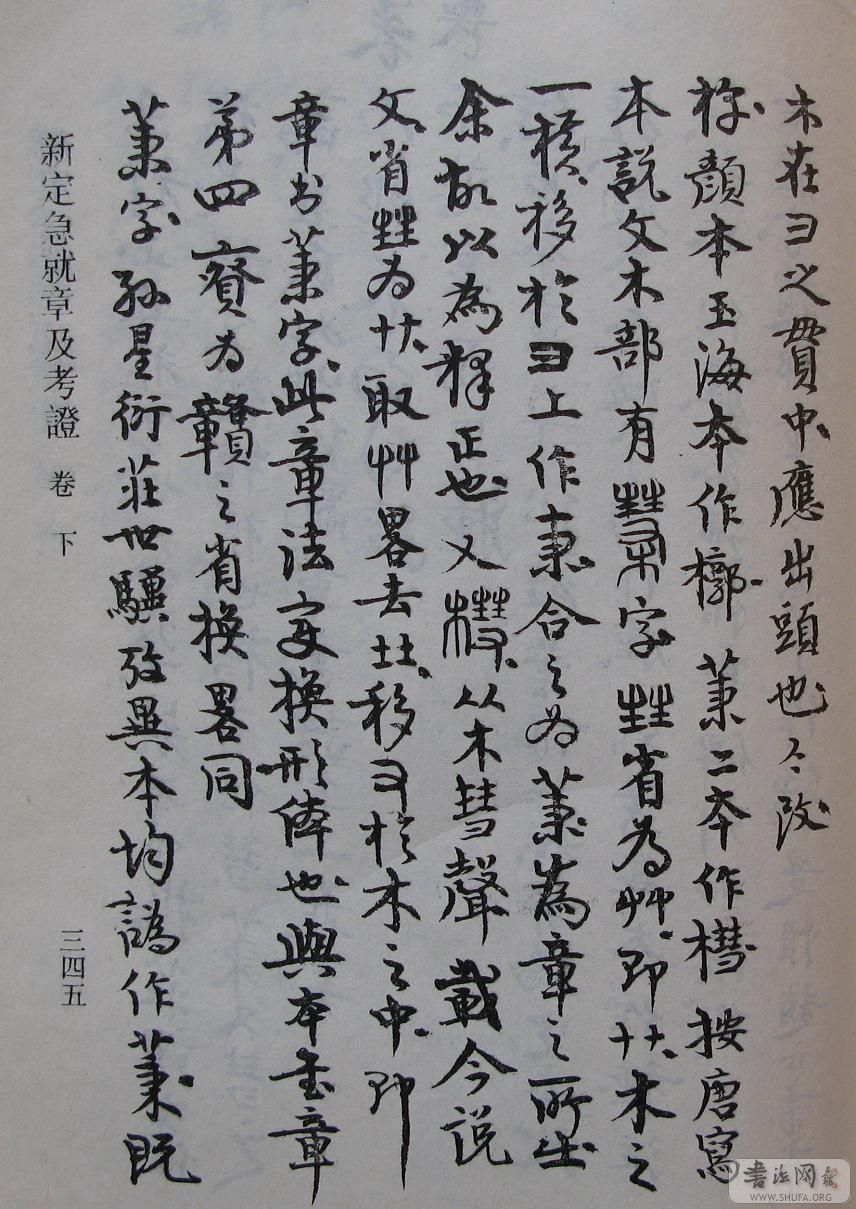 木在彐之貫中應出頭也今改
椁顏本玉海本作槨 䒳二本作槥 按唐寫
本說文木部有字 省為艸即卄木之
一橫移於彐上作 合之為 為章之所出
余故以為釋正也又 从木彗聲 載今說
文省為卄取艸畧去 移于木之中即
章書 字此章法変換形体也與本書章
第四賨為贛之省換畧同
字孫星衍莊世驥攷異本均譌作 既
新定急就章及考證 卷 下
三四五
書法网
WWW.SHUFA.ORG